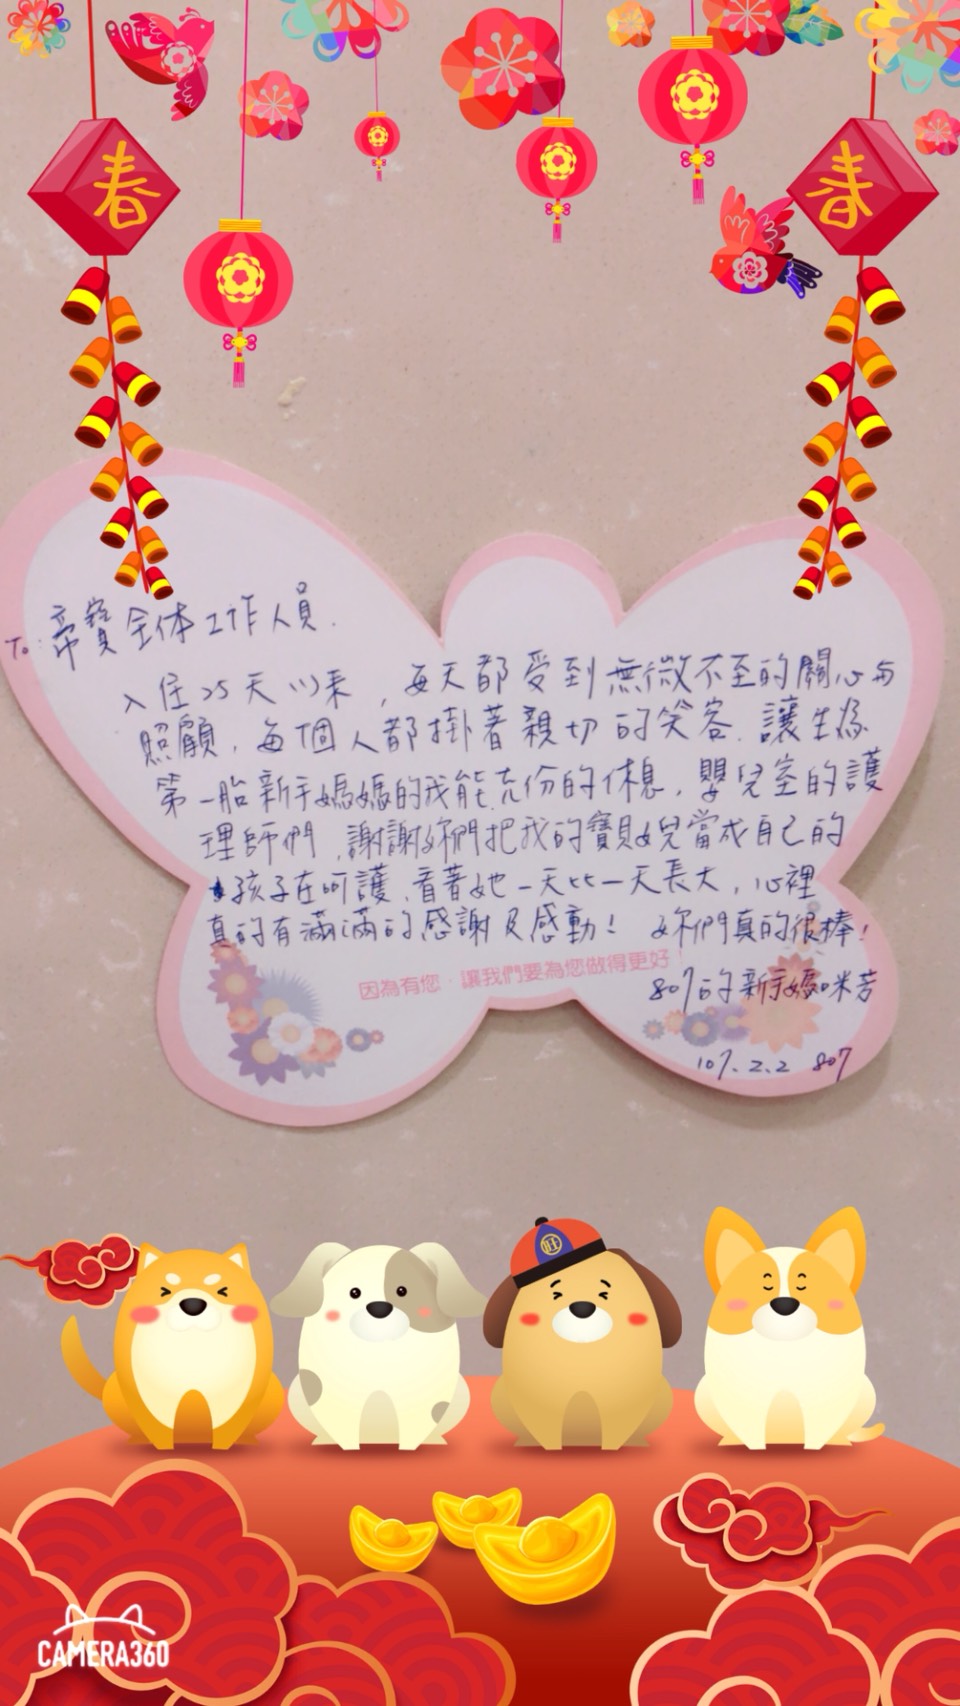 春
春
To: 帝寶全体工作人員.
入住25天以來,每天都受到無微不至的關心与
照顧,每個人都掛著親切的笑容.讓生為
第一胎新手媽媽的我能充份的休息,嬰兒室的護
理師們,謝謝妳們把我的寶貝女兒當成自己的
孩子在呵護,看著她一天比一天長大,心裡
真的有滿滿的感謝及感動! 妳們真的很棒!
因為有您,讓我們要為您做得更好!
807的新手媽咪芳
107.2.2 807
旺
CAMERA360